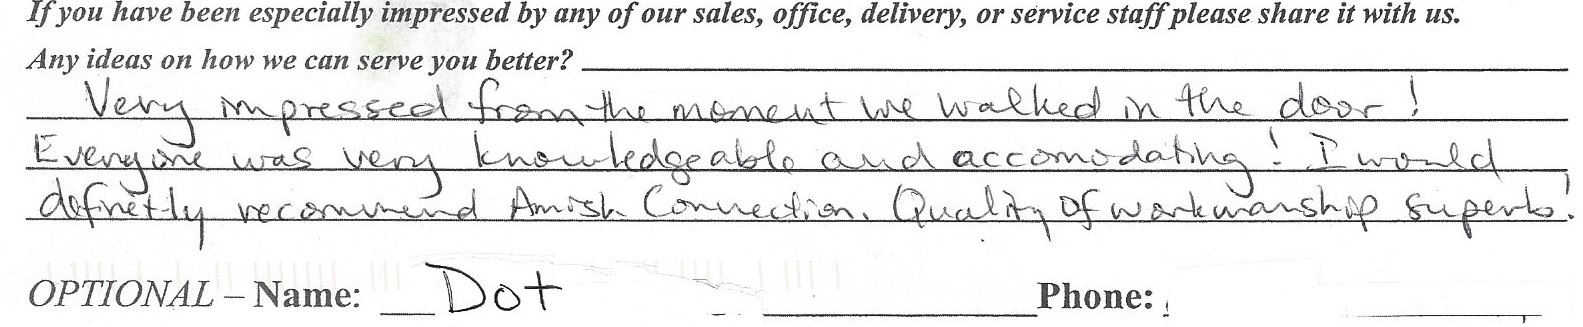 If you have been especially impressed by any of our sales, office, delivery, or service staff please share it with us.
Any ideas on how we can serve you better?
Very impressed from the moment we walked in the door!
Everyone was very knowledgeable and accomodating! I would
definetly recommend Amish Connection. Quality of workmanship superb!
OPTIONAL – Name: Dot Phone: